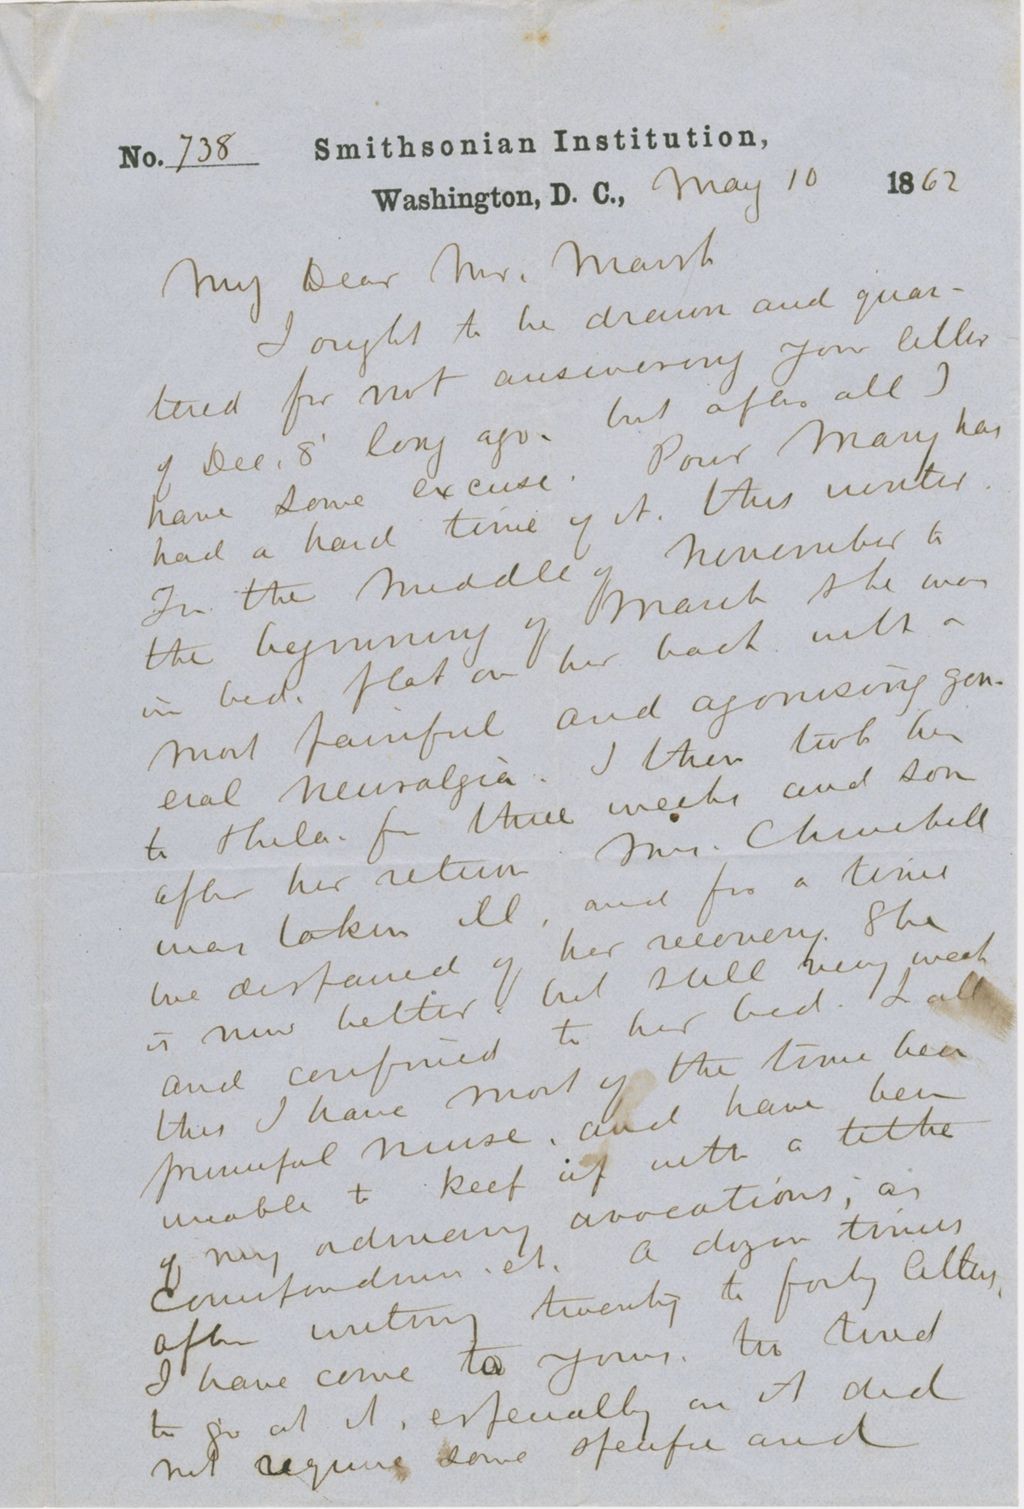 No. 738 Smithsonian Institution,
Washington, D. C., May 10 1862
My Dear Mr. Marsh
I ought to be drawn and quar-
tered for not answering your letter
of Dec. 8' long ago. but after all I
have some excuse. Poor Mary has
had a hard time of it. this winter.
In the middle of November to
the beginning of March she was
in bed, flat on her back with a
most painful and agonising gen-
eral neuralgia. I then took her
to Phila. for three weeks and soon
after her return Mrs. Churchill
was taken ill, and for a time
we despaired of her recovery. She
is now better, but still very weak
and confined to her bed. In all
this I have most of the time been
principal nurse, and have been
unable to keep up with a tithe
of my ordinary avocations; as
correspondence. et. A dozen times
after writing twenty to forty letters,
I have come to yours. too tired
to go at it, especially as it did
not require some specific and